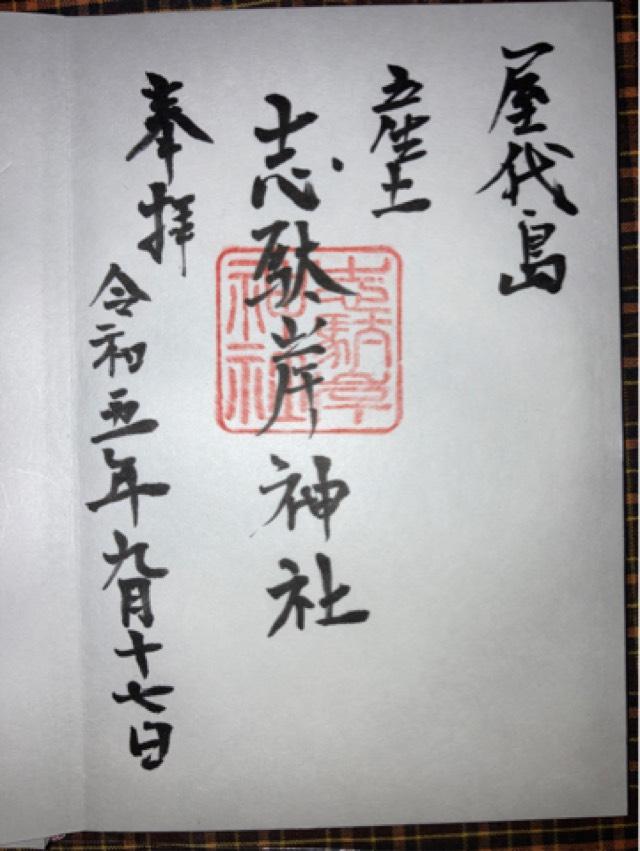 屋代島
五生土
志駄岸神社
奉拝
令和五年九月十七日
志駄岸神社